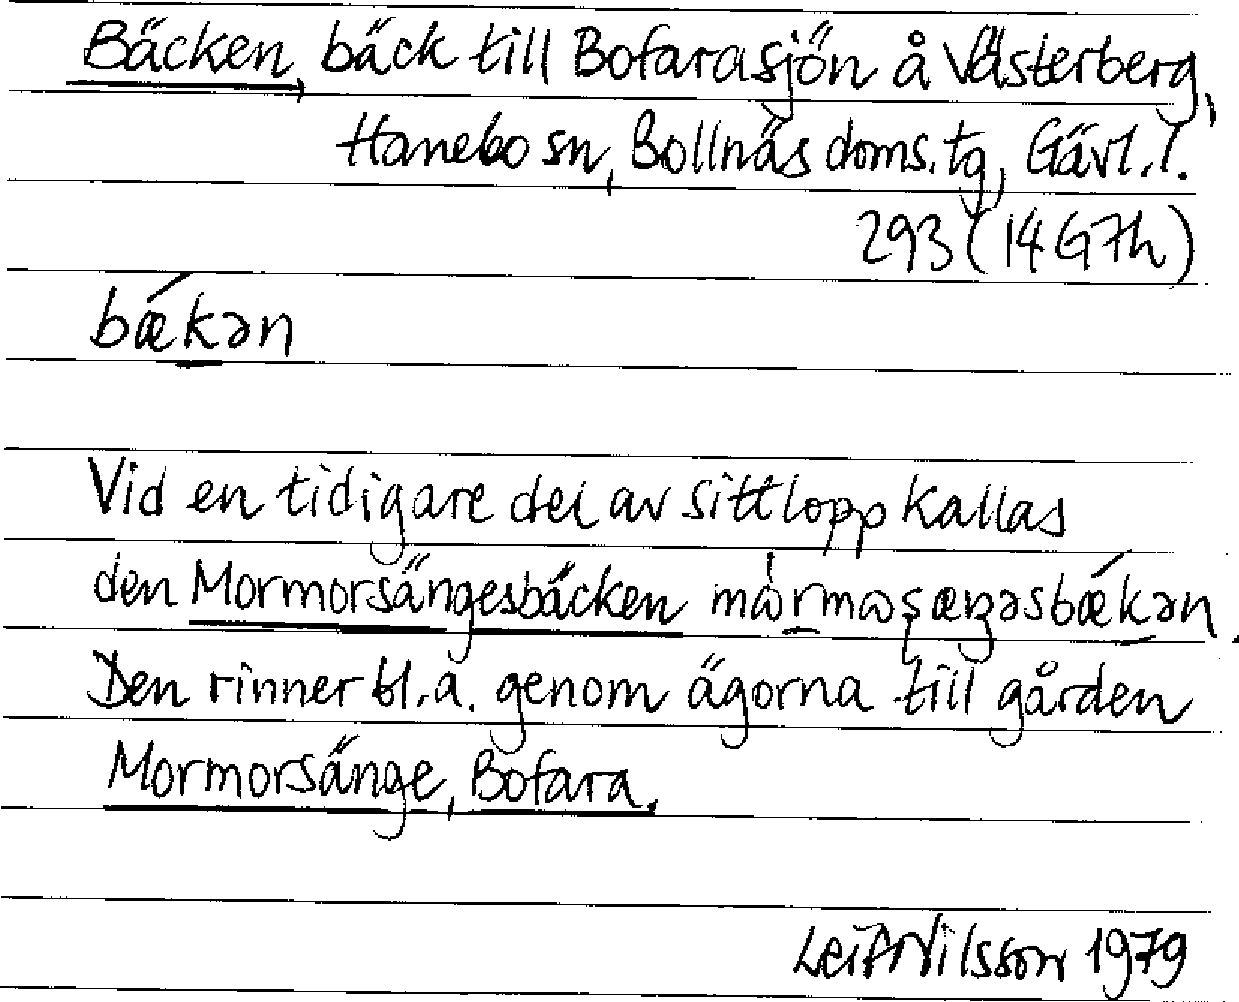 Bäcken, bäck till Bofarasjön å Västerberg,
Hanebo sn, Bollnäs doms.tg, Gävl.l.
293 (14G7h)
bǽkən
Vid en tidigare del av sitt lopp kallas
den Mormorsängesbäcken mɷ̀rmɷşæŋəsbǽkən.
Den rinner bl.a. genom ägorna till gården
Mormorsänge, Bofara.
Leif Nilsson 1979